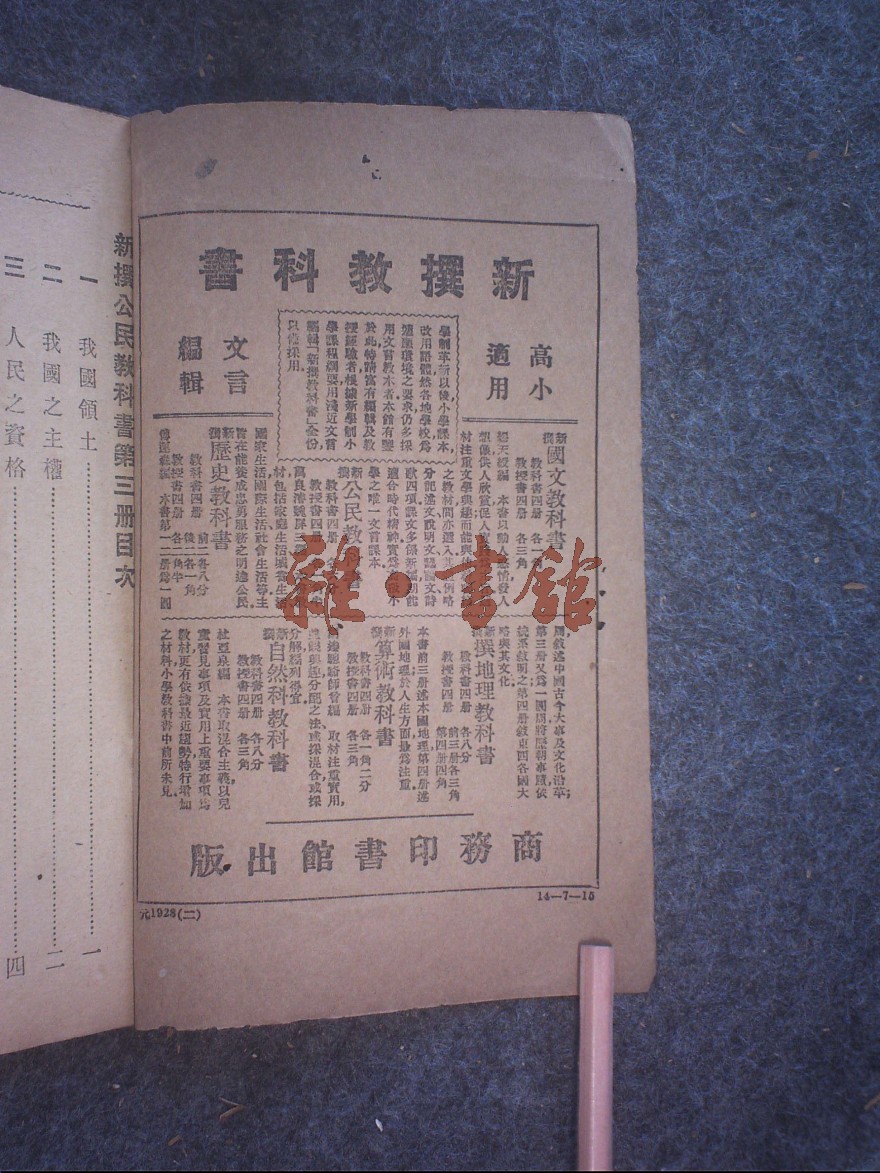 新撰教科書
高小
適用
文言
編輯
學制革新以後小學課本，
改用語體然各地學校爲
適應環境之要求仍多採
用文言教本者本館有鑒
於此特請富有編輯及教
授經驗者根據新學制小
學課程綱要用淺近文言
編輯「新撰教科書」全份
以備採用。
新撰國文教科書
教科書四册 各一角
教授書四册 各三角
本書以動人感情發人
想像供人欣賞促人
材注重文學與建而能與
之教材間亦選入
分記述文說明文議論文詩
歌四項課文多係新編期能
適合時代精神實爲
學之唯一文言課本
新撰公民教科書
教科書四册
教授書四册
材包括家庭生活城鄉生活
國家生活國際生活社會生活等主
旨在能養成忠勇服務之明達公民
新撰歷史教科書
教科書四册 前二各八分 後二各一角
教授書四册 各二角半
本書第一二册爲一圓
周敘述中國古今大事及文化沿革；
第三册又爲一圓周將歷朝事蹟依
統系敘明之第四册敘東西各國大
略與其文化
新撰地理教科書
教科書四册 各八分
教授書四册 前三册各三角 第四册四角
本書前三册述本國地理第四册述
外國地理於人生方面最爲注重
新撰算術教科書
教科書四册 各一角二分
教授書四册 各三角
駱師曾編 取材注重實用，
分配之法或採混合或採
分解編列得宜
新撰自然科教科書
教科書四册 各八分
教授書四册 各三角
杜亞泉編 本書取混合主義以兒
童習見事項及實用上重要事項爲
教材更有依據最近趨勢特行增加
之材料小學教科書中前所未見。
商務印書館出版
14—7—15
元1928(二)
新撰公民教科書第三册目次
一 我國領土……一
二 我國之主權……二
三 人民之資格……四
雜·書館